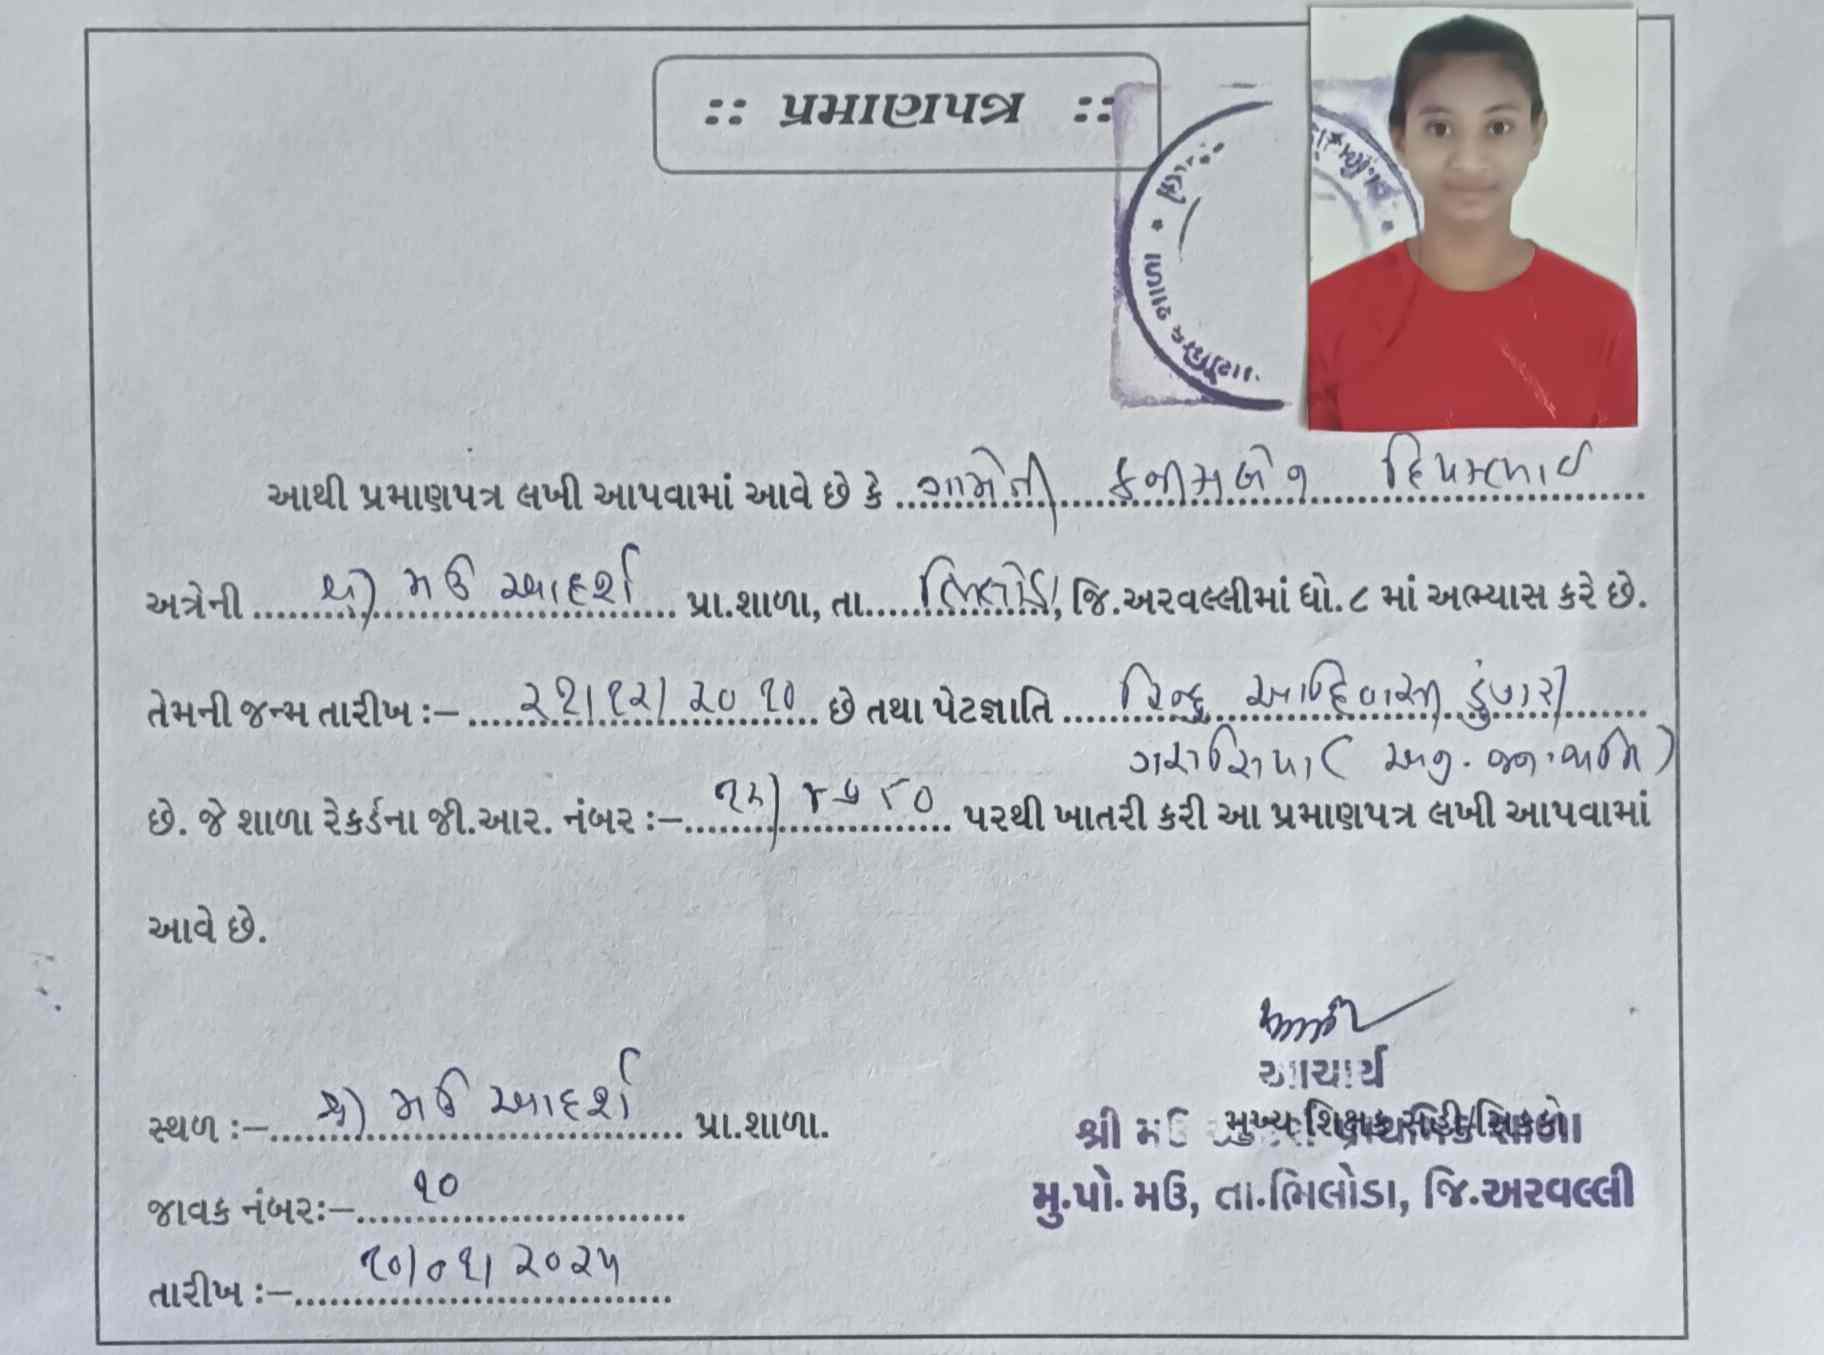 :: પ્રમાણપત્ર ::
પ્રાથમિક શાળા *
આથી પ્રમાણપત્ર લખી આપવામાં આવે છે કે ગામેતી
અત્રેની શ્રી મઉ આદર્શ પ્રા.શાળા, તા. ભિલોડા, જિ.અરવલ્લીમાં ધો.૮ માં અભ્યાસ કરે છે.
તેમની જન્મ તારીખ :- ૨૧/૧૨/૨૦૧૦ છે તથા પેટજ્ઞાતિ હિન્દુ આદિવાસી ડુંગરી
ગરાસિયા (અનુ. જન.જાતિ)
છે. જે શાળા રેકર્ડના જી.આર. નંબર :- પરથી ખાતરી કરી આ પ્રમાણપત્ર લખી આપવામાં
આવે છે.
આચાર્ય
સ્થળ :- શ્રી મઉ આદર્શ પ્રા.શાળા.
મુખ્ય શિક્ષક સહી/સિક્કો
શ્રી મઉ પ્રાથમિક શાળા
જાવક નંબર:- ૧૦
મુ.પો. મઉ, તા.ભિલોડા, જિ.અરવલ્લી
તારીખ :- ૧૦/૦૧/૨૦૨૫